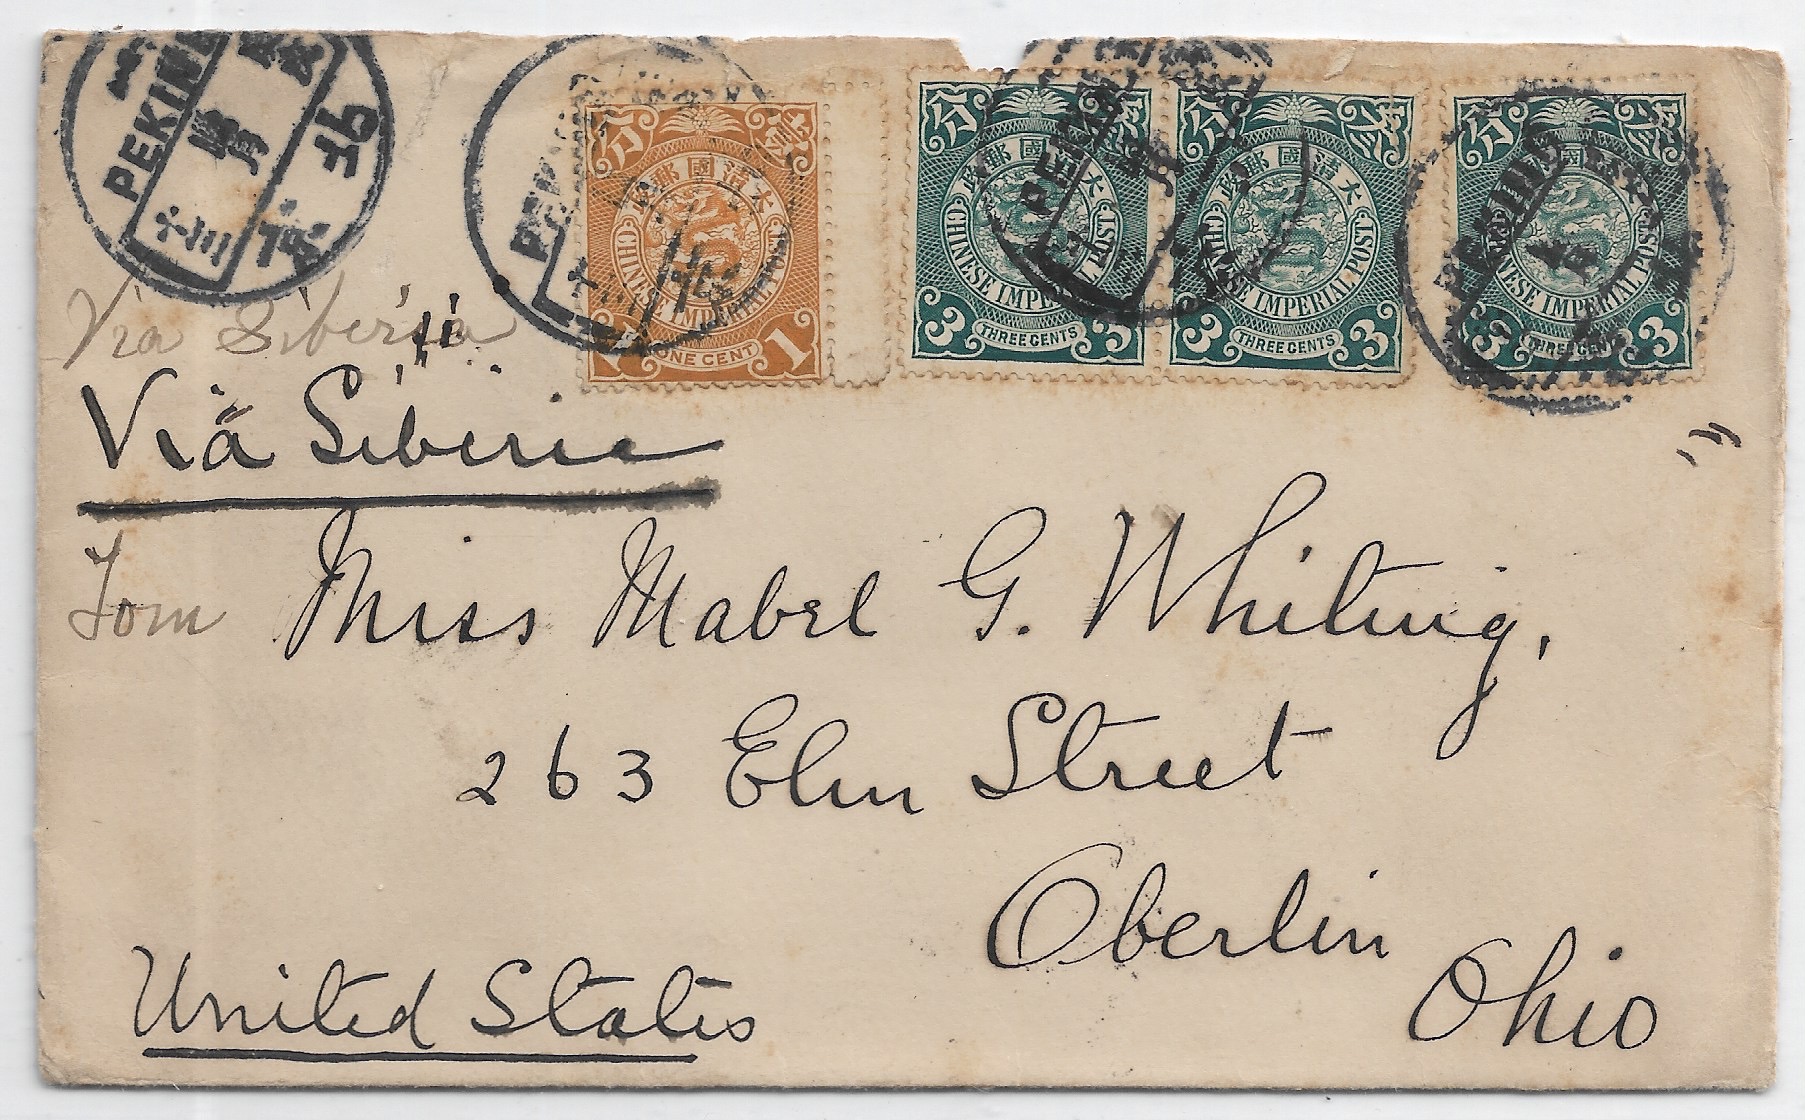 PEKIN
北
京
十三
PEKIN
十三
大清國郵政
CHINESE IMPERIAL
ONE CENT
1
分
大清國郵政
CHINESE IMPERIAL POST
3 THREE CENTS 3
分
PEKIN
大清國郵政
CHINESE IMPERIAL POST
3 THREE CENTS 3
分
CHINESE IMPERIAL POST
3 THREE CENTS 3
Via Siberia
Via Siberia
Tom Miss Mabel G. Whiting,
263 Elm Street
Oberlin
Ohio
United States